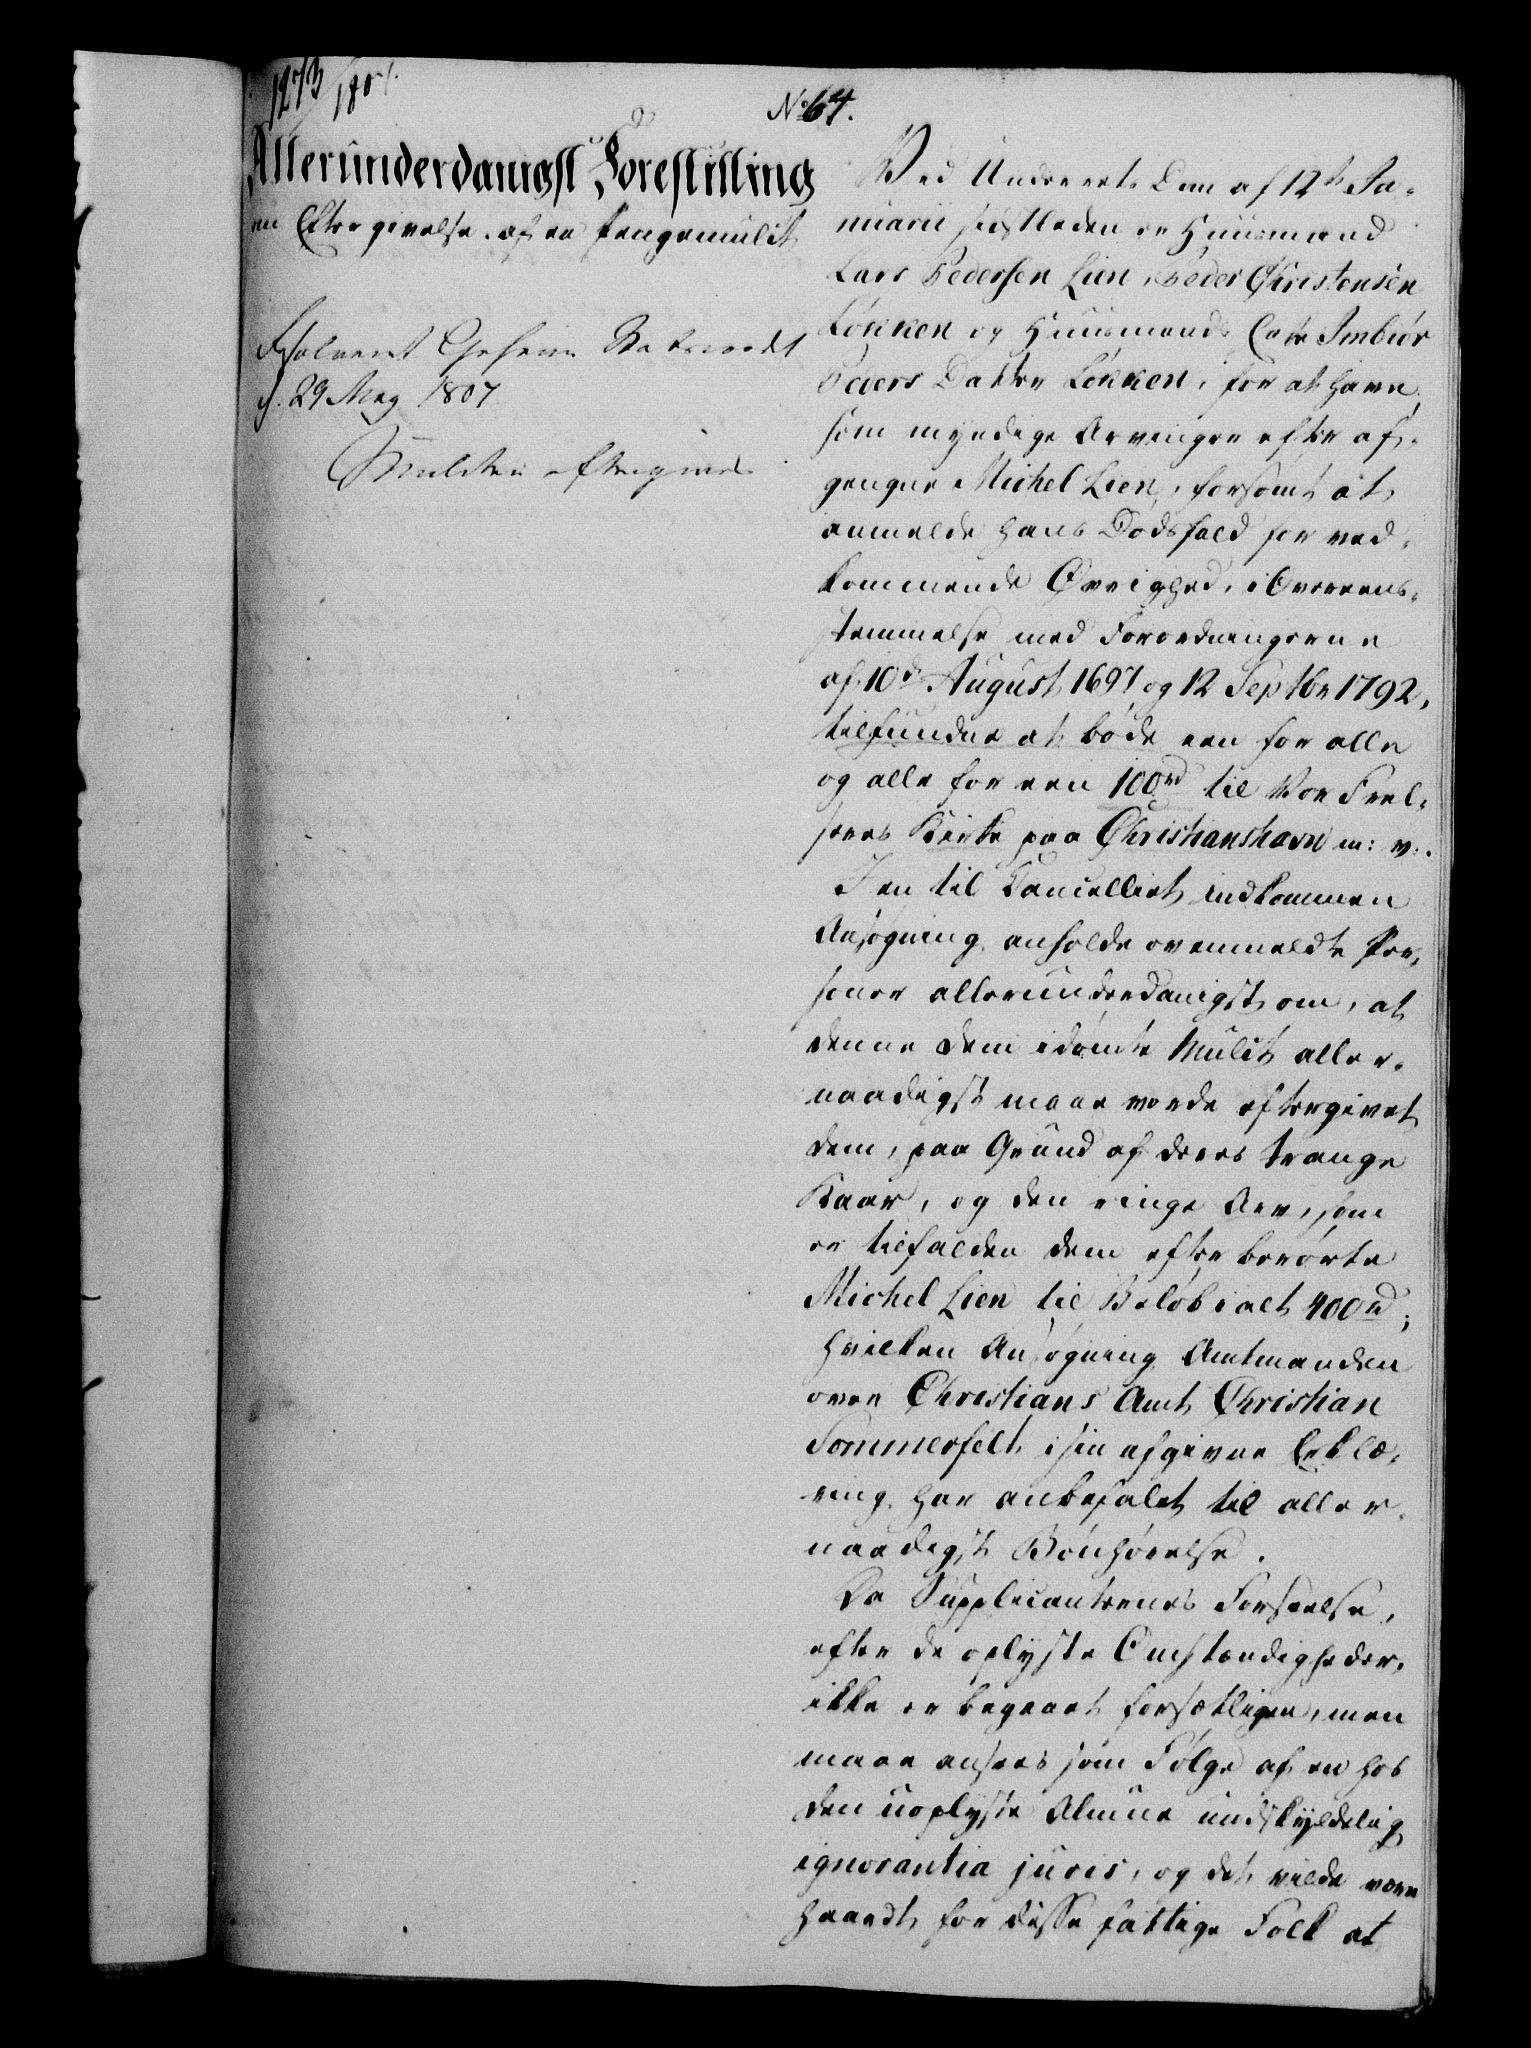 1273/1807.
No 64.
Allerunderdanigst Forestilling
om Eftergivelse af en Pengemulct
Resolveret Geheime Statsraadet
d. 29 May 1807
Mulcten eftergives
Ved Underrets Dom af 12te Ja-
nuarii sidstleden er Huusmand
Lars Pedersen Lien, Peder Christensen
Løkken og Huusmands Enke Imbiør
Peders Datter Løkken, for at have,
som myndige Arvinger efter af-
gangne Michel Lien, forsømt at
anmelde hans Dødsfald for ved-
kommende Øvrighed, i Overeens-
stemmelse med Forordningerne
af 10de August 1697 og 12 Septbr 1792,
tilfunden at bøde een for alle
og alle for een 100rd til Vor Frel-
seres Kirke paa Christianshavn m: v:.
I en til Cancelliet indkommen
Ansøgning anholde ovenmeldte Per-
soner allerunderdanigst om, at
denne dem idømte Mulct aller-
naadigst maae vorde eftergivet
dem, paa Grund af deres trange
Kaar, og den ringe Arv, som
er tilfalden dem efter berørte
Michel Lien til Beløb i alt 400rd;
hvilken Ansøgning Amtmanden
over Christians Amt Christian
Sommerfelt i sin afgivne Erklæ-
ring har anbefalet til aller-
naadigst Bønhørelse.
Da Supplicanternes Forseelse,
efter de oplyste Omstændigheder,
ikke er begaaet forsætligen, men
maae ansees som Følge af en hos
den uoplyste Almue undskyldelig
ignorantia juris, og det vilde være
haardt for disse fattige Folk at